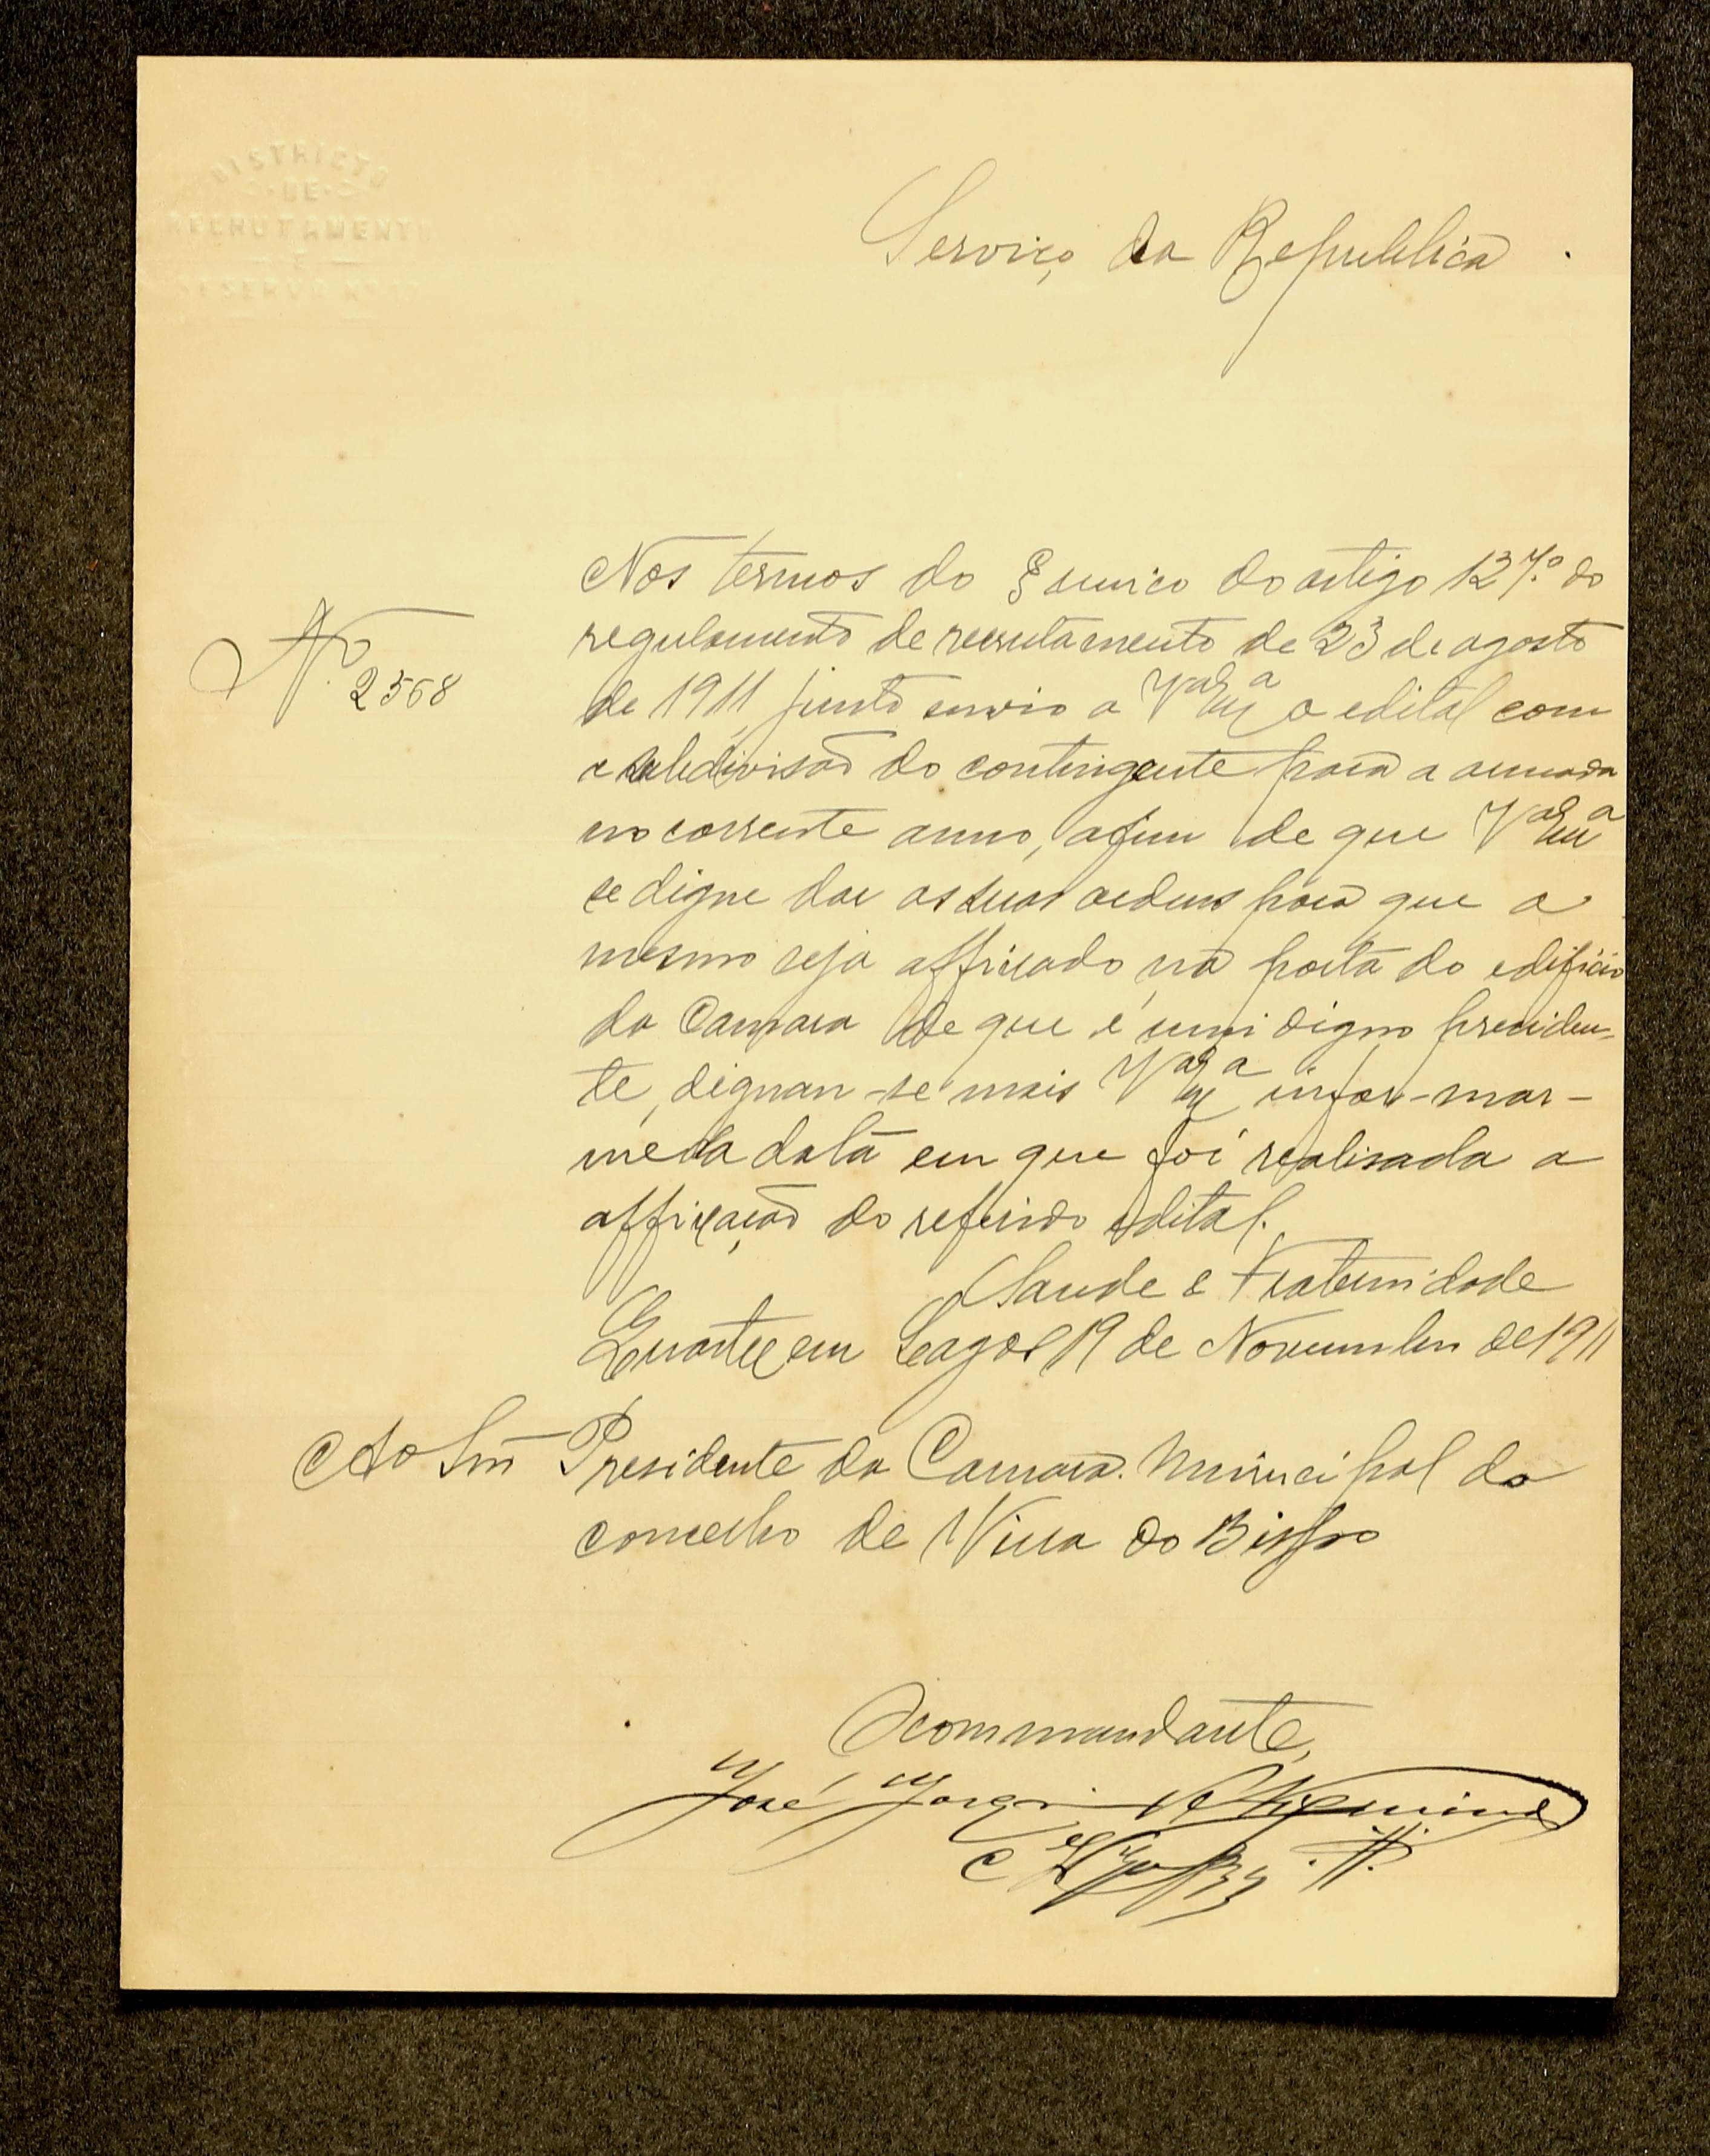 DISTRICTO
DE
RECRUTAMENTO
E
Serviço da Republica
Nos termos do § unico do artigo 127.º do
regulamento de recrutamento de 23 de agosto
Nº 2568
de 1911 junto envio a V.ª Ex.ª o edital com
a subdivisão do contingente para a armada
no corrente anno, afim de que V.ª Ex.ª
se digne dar as suas ordens para que o
mesmo seja affixado na porta do edificio
da Camara de que é mui digno presiden-
te, dignan-se mais V.ª Ex.ª infor-mar-
me da data em que foi realisada a
affixação do referido edital.
Saude e Fraternidade
Quartel em Lagos 19 de Novembro de 1911
Ao Snr Presidente da Camara Municipal do
concelho de Villa do Bispo
O commandante,
José Jorge